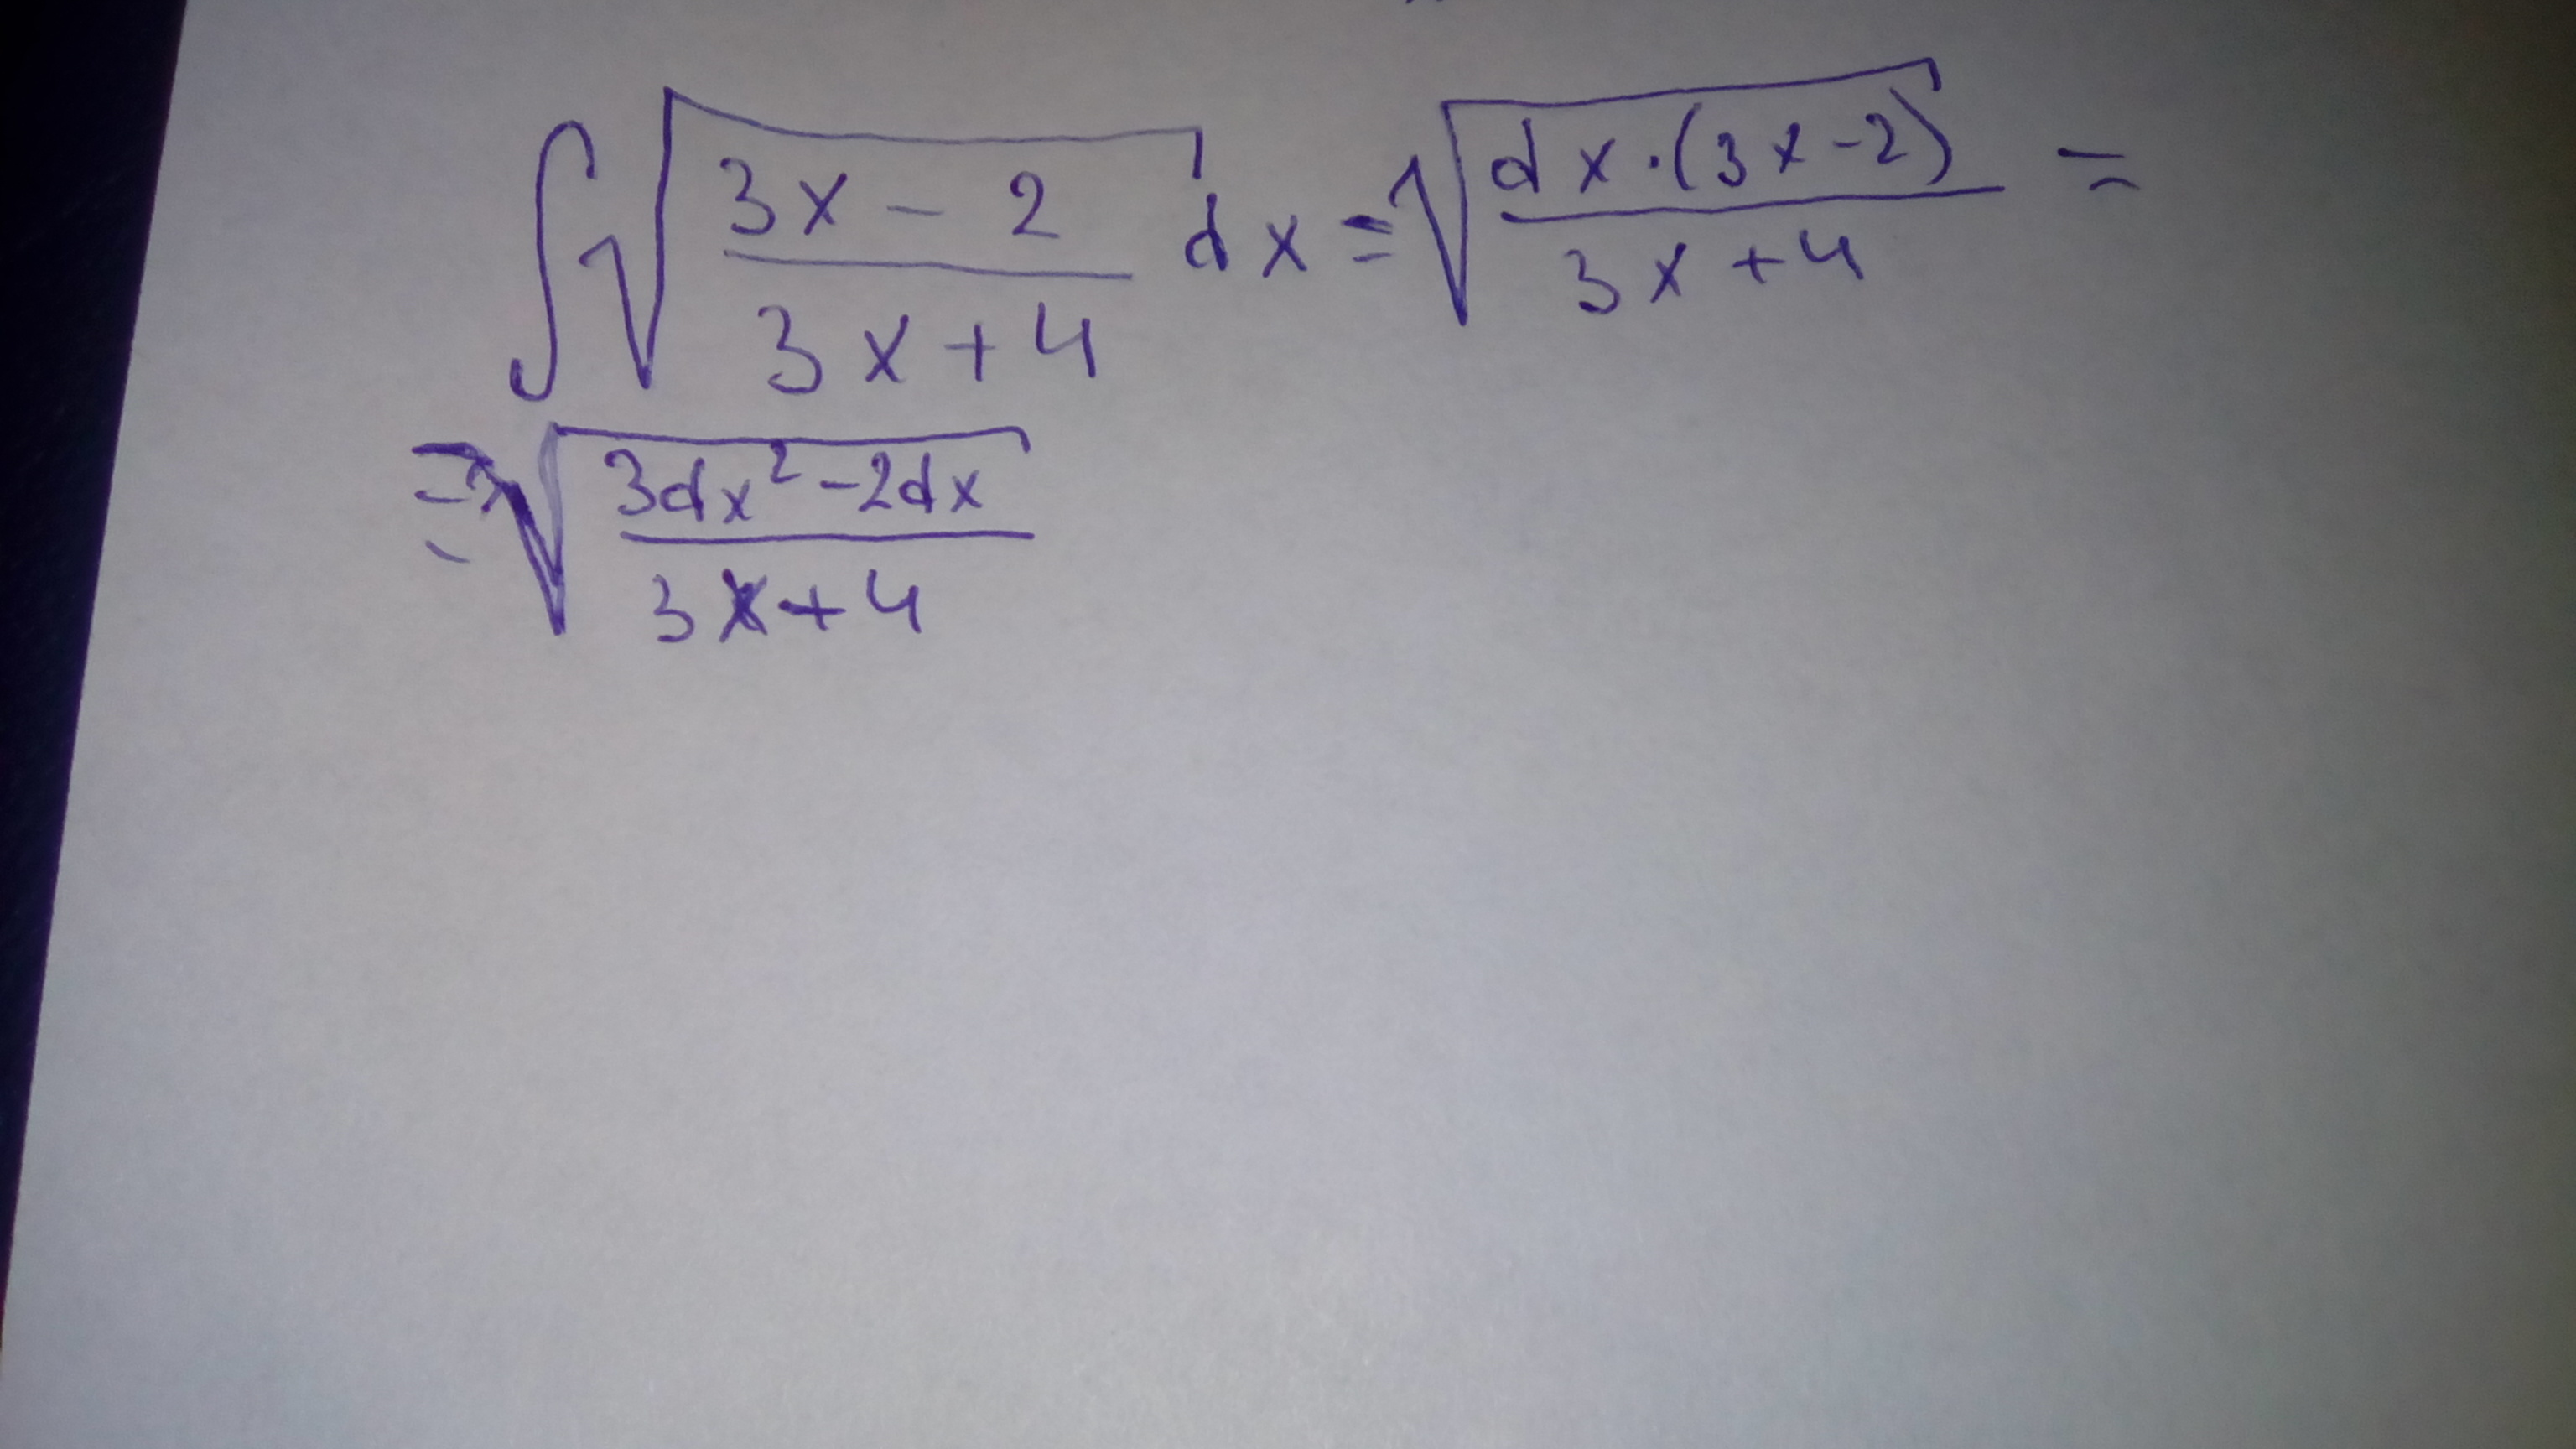 ∫√((3x - 2)/(3x + 4)) dx = √((dx·(3x-2))/(3x+4)) =
= √((3dx²-2dx)/(3x+4))